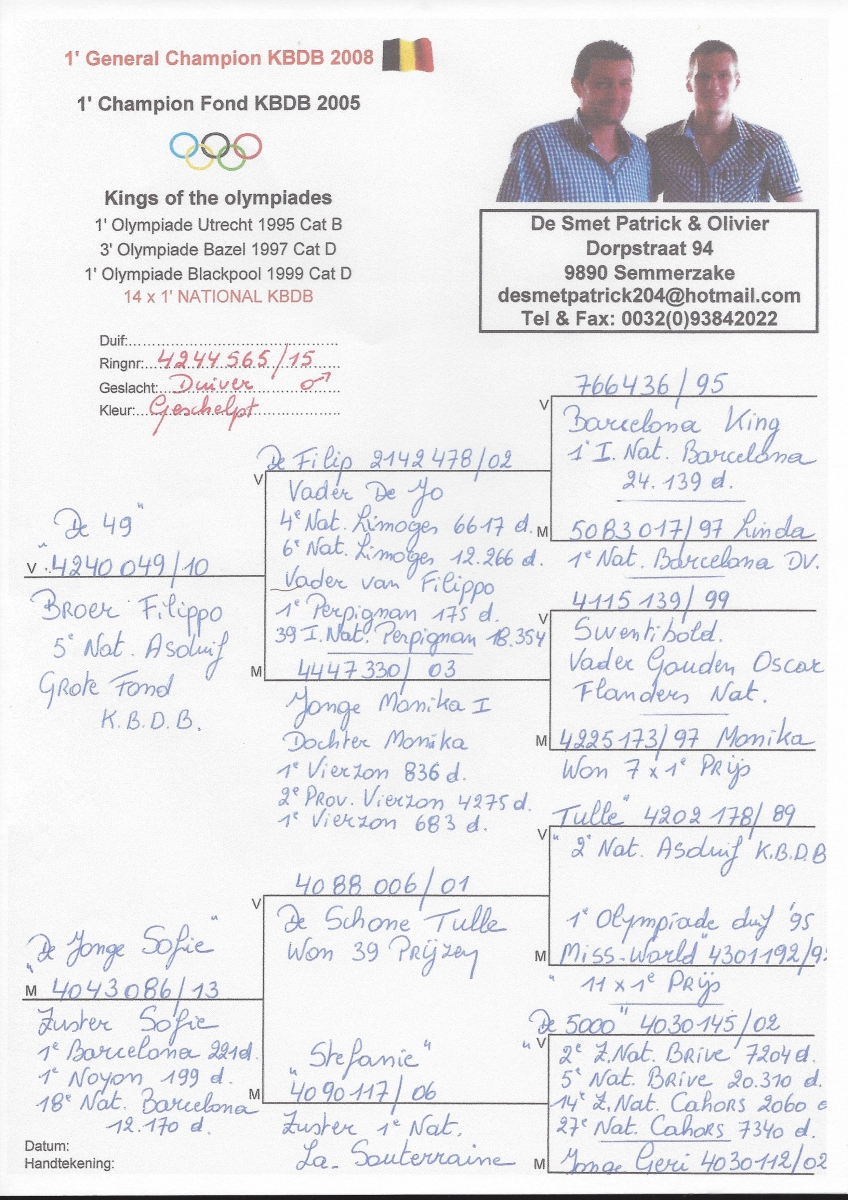 1' General Champion KBDB 2008
1' Champion Fond KBDB 2005
Kings of the olympiades
1' Olympiade Utrecht 1995 Cat B
3' Olympiade Bazel 1997 Cat D
1' Olympiade Blackpool 1999 Cat D
14 x 1' NATIONAL KBDB
De Smet Patrick & Olivier
Dorpstraat 94
9890 Semmerzake
desmetpatrick204@hotmail.com
Tel & Fax: 0032(0)93842022
Duif:
Ringnr: 4244565/15
Geslacht: Duiver ♂
Kleur: Geschelpt
"De 49"
V 4240049/10
Broer Filippo
5e Nat. Asduif
Grote Fond
K.B.D.B.
"De Jonge Sofie"
M 4043086/13
Zuster Sofie
1e Barcelona 221d.
1e Noyon 199 d.
18e Nat. Barcelona
12.170 d.
De Filip 2142478/02
V
Vader De Jo
4e Nat. Limoges 6617 d.
6e Nat. Limoges 12.266 d.
Vader van Filippo
1e Perpignan 175 d.
39 I.Nat. Perpignan 18.354
M 4447330/03
Jonge Monika I
Dochter Monika
1e Vierzon 836 d.
2e Prov. Vierzon 4275 d.
1e Vierzon 683 d.
4088006/01
V
De Schone Tulle
Won 39 Prijzen
"Stefanie"
M 4090117/06
Zuster 1e Nat.
La-Souterraine
766436/95
V
Barcelona King
1' I. Nat. Barcelona
24.139 d.
M 5083017/97 Linda
1e Nat. Barcelona DV.
4115139/99
V
Swentibold.
Vader Gouden Oscar
Flanders Nat.
M 4225173/97 Monika
Won 7 x 1e Prijs
"Tulle" 4202178/89
V
2e Nat. Asduif K.B.D.B
1e Olympiade duif '95
M "Miss-World" 4301192/9
11 x 1e Prijs
"De 5000" 4030145/02
V
2e Z.Nat. Brive 7204 d.
5e Nat. Brive 20.310 d.
14e Z.Nat. Cahors 2060
27e Nat. Cahors 7340 d.
M Jonge Geri 4030112/02
Datum:
Handtekening: